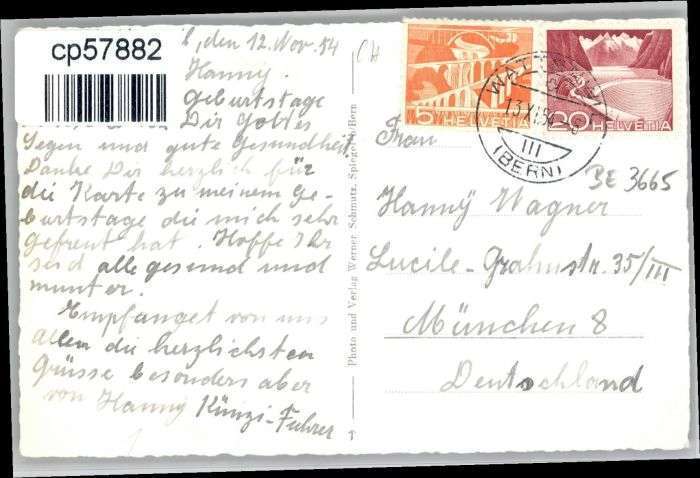 cp57882
, den 12. Nov. 54
Hanny.
Geburtstage
Dir Gottes
Segen und gute Gesundheit.
Danke Dir herzlich für
die Karte zu meinem Ge-
burtstage die mich sehr
gefreut hat. Hoffe Ihr
seid alle gesund und
munter.
Empfanget von uns
allen die herzlichsten
Grüsse besonders aber
von Hanny Künzi-Fuhrer
Photo und Verlag Werner Schmutz, Spiegel b/Bern
CH
5 HELVETIA
20 HELVETIA
13.XI.54
III
(BERN)
BE 3665
Frau
Hanny Wagner
Lucile-Grahnstr. 35/III
München 8
Deutschland